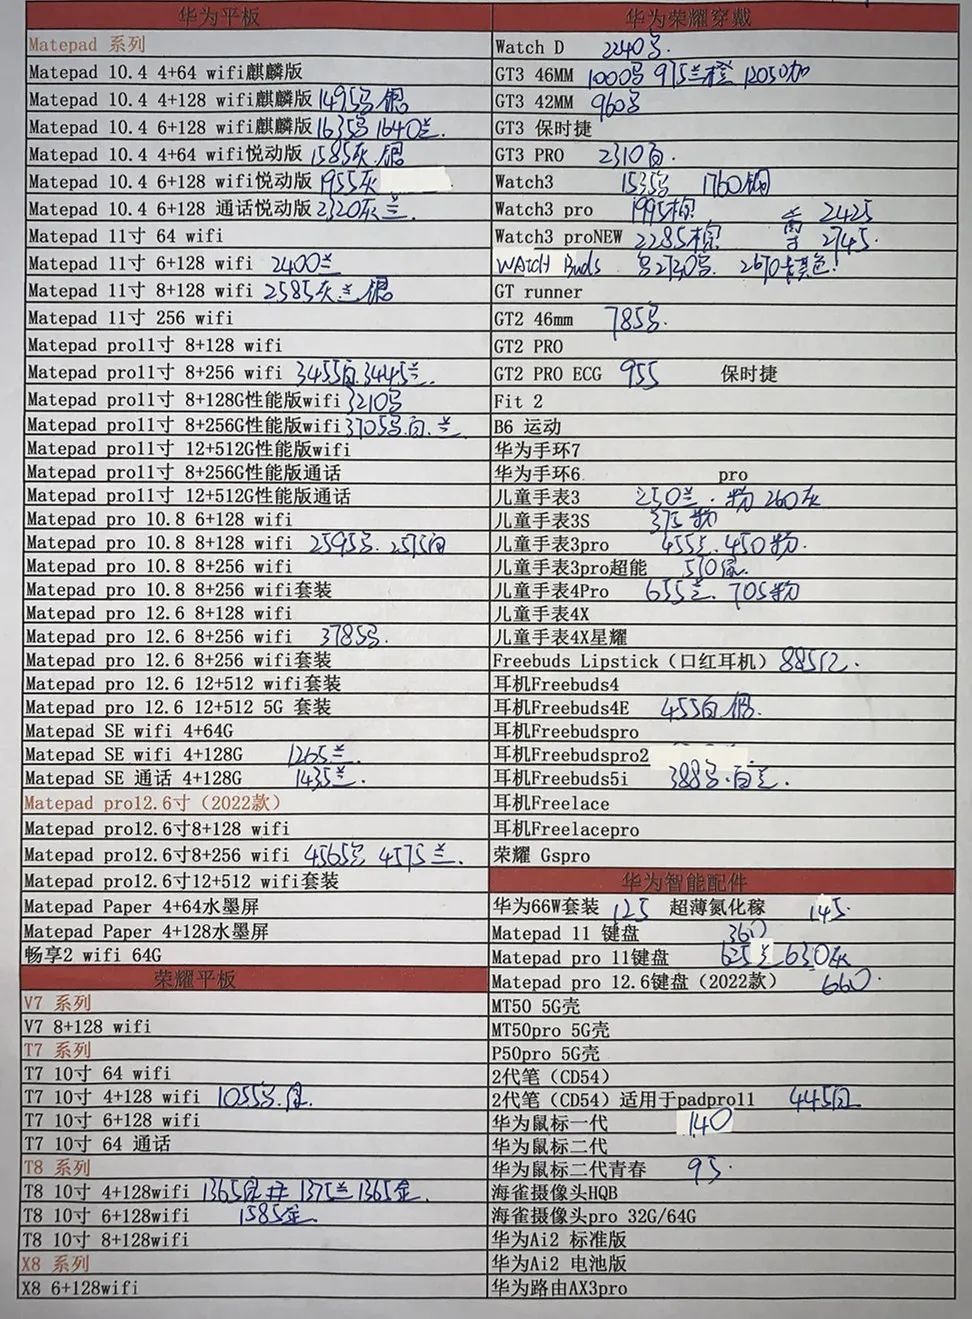 华为平板
Matepad 系列
Matepad 10.4 4+64 wifi麒麟版
Matepad 10.4 4+128 wifi麒麟版 1495 银
Matepad 10.4 6+128 wifi麒麟版 1635 1640兰.
Matepad 10.4 4+64 wifi悦动版 1585灰.银
Matepad 10.4 6+128 wifi悦动版 1955灰
Matepad 10.4 6+128 通话悦动版 2320灰兰.
Matepad 11寸 64 wifi
Matepad 11寸 6+128 wifi 2400兰
Matepad 11寸 8+128 wifi 2585灰兰银
Matepad 11寸 256 wifi
Matepad pro11寸 8+128 wifi
Matepad pro11寸 8+256 wifi 3455白.3445兰.
Matepad pro11寸 8+128G性能版wifi 3210
Matepad pro11寸 8+256G性能版wifi 3705.白.兰.
Matepad pro11寸 12+512G性能版wifi
Matepad pro11寸 8+256G性能版通话
Matepad pro11寸 12+512G性能版通话
Matepad pro 10.8 6+128 wifi
Matepad pro 10.8 8+128 wifi 2595. 2575白
Matepad pro 10.8 8+256 wifi
Matepad pro 10.8 8+256 wifi套装
Matepad pro 12.6 8+128 wifi
Matepad pro 12.6 8+256 wifi 3785.
Matepad pro 12.6 8+256 wifi套装
Matepad pro 12.6 12+512 wifi套装
Matepad pro 12.6 12+512 5G 套装
Matepad SE wifi 4+64G
Matepad SE wifi 4+128G 1265兰.
Matepad SE 通话 4+128G 1435兰.
Matepad pro12.6寸（2022款）
Matepad pro12.6寸8+128 wifi
Matepad pro12.6寸8+256 wifi 4565 4575兰.
Matepad pro12.6寸12+512 wifi套装
Matepad Paper 4+64水墨屏
Matepad Paper 4+128水墨屏
畅享2 wifi 64G
荣耀平板
V7 系列
V7 8+128 wifi
T7 系列
T7 10寸 64 wifi
T7 10寸 4+128 wifi 1055
T7 10寸 6+128 wifi
T7 10寸 64 通话
T8 系列
T8 10寸 4+128wifi 1365 1375兰 1365金.
T8 10寸 6+128wifi 1585金.
T8 10寸 8+128wifi
X8 系列
X8 6+128wifi
华为荣耀穿戴
Watch D 2240
GT3 46MM 1000 975兰橙 1205
GT3 42MM 960
GT3 保时捷
GT3 PRO 2310白.
Watch3 1535 1760钢
Watch3 pro 1995棕 2425
Watch3 proNEW 2285棕 2745.
WAtcH Buds 2730 2670
GT runner
GT2 46mm 785
GT2 PRO
GT2 PRO ECG 955 保时捷
Fit 2
B6 运动
华为手环7
华为手环6 pro
儿童手表3 250兰.粉 260灰
儿童手表3S 375粉
儿童手表3pro 455兰.450粉.
儿童手表3pro超能 510
儿童手表4Pro 655兰. 705粉
儿童手表4X
儿童手表4X星耀
Freebuds Lipstick（口红耳机）885红.
耳机Freebuds4
耳机Freebuds4E 455白银.
耳机Freebudspro
耳机Freebudspro2
耳机Freebuds5i 388.白兰.
耳机Freelace
耳机Freelacepro
荣耀 Gspro
华为智能配件
华为66W套装 125 超薄氮化稼 145.
Matepad 11 键盘 360
Matepad pro 11键盘 625兰 630灰
Matepad pro 12.6键盘（2022款） 660.
MT50 5G壳
MT50pro 5G壳
P50pro 5G壳
2代笔（CD54）
2代笔（CD54）适用于padpro11 445白
华为鼠标一代 140
华为鼠标二代
华为鼠标二代青春 95.
海雀摄像头HQB
海雀摄像头pro 32G/64G
华为Ai2 标准版
华为Ai2 电池版
华为路由AX3pro